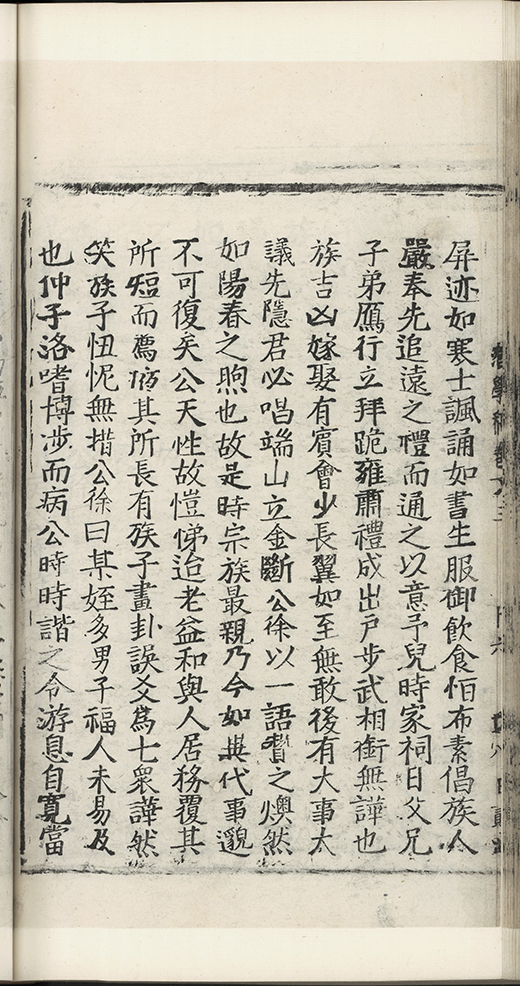 屏迹如寒士諷誦如書生服御飲食怕布素倡族人
嚴奉先追遠之禮而通之以意予兒時家祠日父兄
子弟鴈行立拜跪雍肅禮成出戸步武相銜無譁也
族吉凶嫁娶有賓會少長翼如至無敢後有大事太
議先隱君必唱端山立金斷公徐以一語贊之燠然
如陽春之煦也故是時宗族最親乃今如異代事邈
不可復矣公天性故愷悌迨老益和與人居務覆其
所短而薦宿其所長有族子畫卦誤爻為七衆譁然
笑族子忸怩無措公徐曰某姪多男子福人未易及
也仲子洛嗜博涉而病公時時諧之令游息自寛當